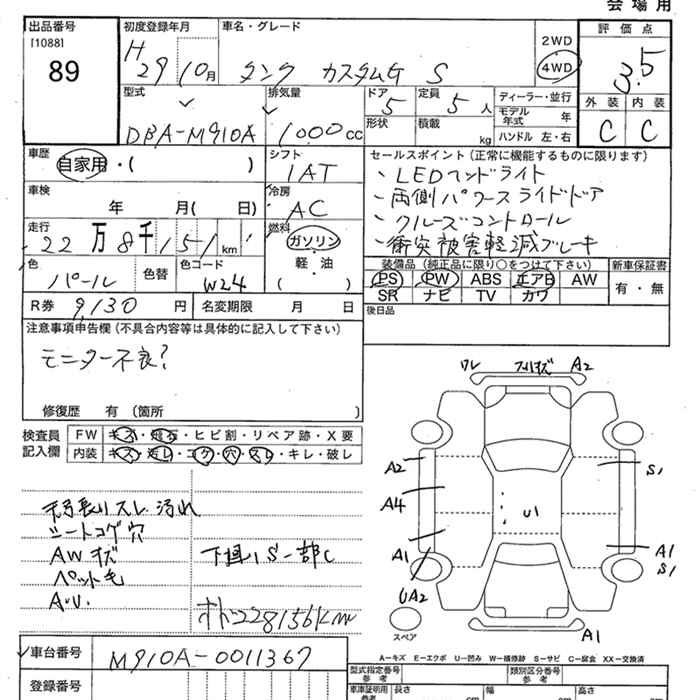 会場用
出品番号
[1088]
89
初度登録年月
H 29 10月
車名・グレード
タンク カスタムG S
2WD
4WD
評価点
3.5
外装 内装
C C
型式
DBA-M910A
排気量
1000cc
ドア
5
定員
5人
形状
積載
kg
ディーラー・並行
モデル年式 年
ハンドル 左・右
車歴
自家用・( )
シフト
IAT
セールスポイント(正常に機能するものに限ります)
、LEDヘッドライト
、両側パワースライドドア
、クルーズコントロール
、衝突被害軽減ブレーキ
車検
年 月( 日)
冷房
AC
走行
22万8千151km
燃料
ガソリン
軽・油
( )
色
パール
色替
色コード
W24
装備品(純正品に限り○をつけて下さい)
PS PW ABS エアB AW
SR ナビ TV カワ
新車保証書
有・無
R券 9,130円
名変期限 月 日
後日品
注意事項申告欄(不具合内容等は具体的に記入して下さい)
モニター不良?
修復歴 有(箇所 )
検査員記入欄
FW キズ・飛石・ヒビ割・リペア跡・X要
内装 キズ・汚レ・コゲ・穴・スレ・キレ・破レ
スレ 汚れ
シートコゲ穴
AWキズ
ペット毛
A.U.
下廻りS一部C
228156km
ワレ スリキズ A2
A2
A4
A1
UA2
U1
S1
A1
S1
A1
スペア
A-キズ E-エクボ U-凹み W-補修跡 S-サビ C-腐食 XX-交換済
車台番号
M910A-0011367
登録番号
型式指定番号
参考
類別区分番号
参考
車庫証明用
参考
長さ
幅
高さ